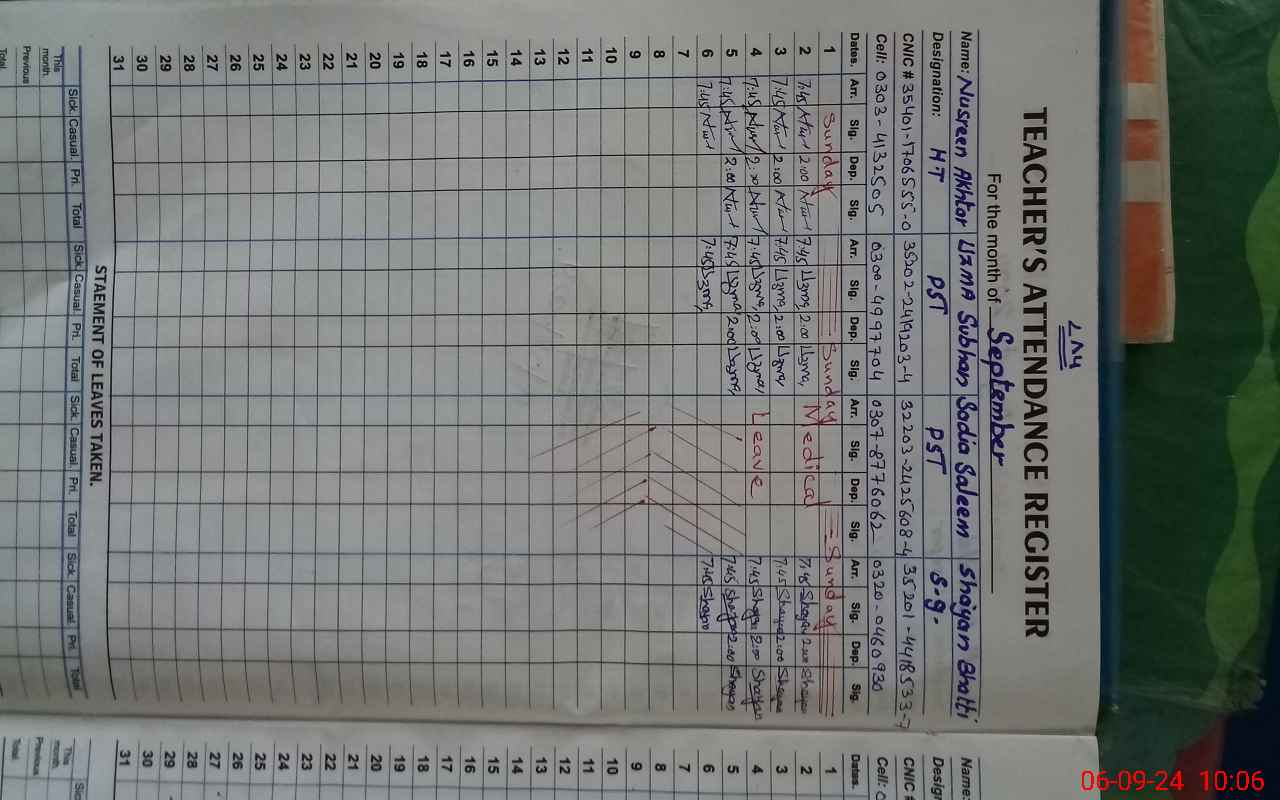 LND
TEACHER'S ATTENDANCE REGISTER
For the month of September
Name: Nusreen Akhtar Uzma Subhan Sadia Saleem Shayan Bhatti
Designation: HT PST PST S-g.
CNIC # 35401-1706555-0 35202-2419203-4 32203-2425608-4 35201-4418533-7
Cell: 0303-4132505 0300-4997704 0307-8776062 0320-0460930
Dates. Arr. Sig. Dep. Sig. Arr. Sig. Dep. Sig. Arr. Sig. Dep. Sig. Arr. Sig. Dep. Sig.
1 Sunday Sunday Sunday
2 7:45 2:00 7:45 Uzma 2:00 Uzma Medical 7:45 Shayan 2:00 Shayan
3 7:45 2:00 7:45 Uzma 2:00 Uzma 7:45 Shayan 2:00 Shayan
4 7:45 2:00 7:45 Uzma 2:00 Uzma Leave 7:45 Shayan 2:00 Shayan
5 7:45 2:00 7:45 Uzma 2:00 Uzma 7:45 Shayan 2:00 Shayan
6 7:45 7:45 Uzma 7:45 Shayan
7
8
9
10
11
12
13
14
15
16
17
18
19
20
21
22
23
24
25
26
27
28
29
30
31
STAEMENT OF LEAVES TAKEN.
Sick. Casual. Pri. Total Sick. Casual. Pri. Total Sick. Casual. Pri. Total Sick. Casual. Pri. Total
This month.
Previous
Total.
Name:
Design
CNIC #
Cell: 0
Dates.
1
2
3
4
5
6
7
8
9
10
11
12
13
14
15
16
17
18
19
20
21
22
23
24
25
26
27
28
29
30
31
Sic
This month
Previous
Total.
06-09-24 10:06